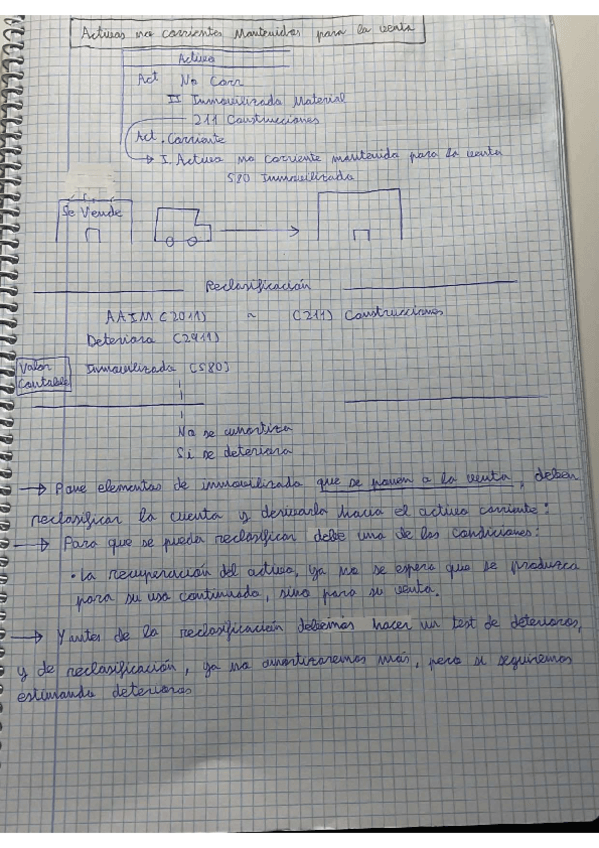 Activos no corrientes Mantenidos para la venta
Activo
Act No Corr
II Inmovilizado Material
211 Construcciones
Act. Corriente
I. Activo no corriente mantenido para la venta
580 Inmovilizado
Se Vende
Reclasificación
AAIM (2811) a (211) Construcciones
Deterioro (2911)
Valor Contable
Inmovilizado (580)
No se amortiza
Si se deteriora
→ Para elementos de inmovilizado que se ponen a la venta, deben
reclasificar la cuenta y derivarla hacia el activo corriente:
→ Para que se pueda reclasificar debe una de las condiciones:
· La recuperación del activo, ya no se espera que se produzca
para su uso continuado, sino para su venta.
→ Y antes de la reclasificación debemos hacer un test de deterioros,
y de reclasificación, ya no amortizaremos más, pero si seguiremos
estimando deterioros